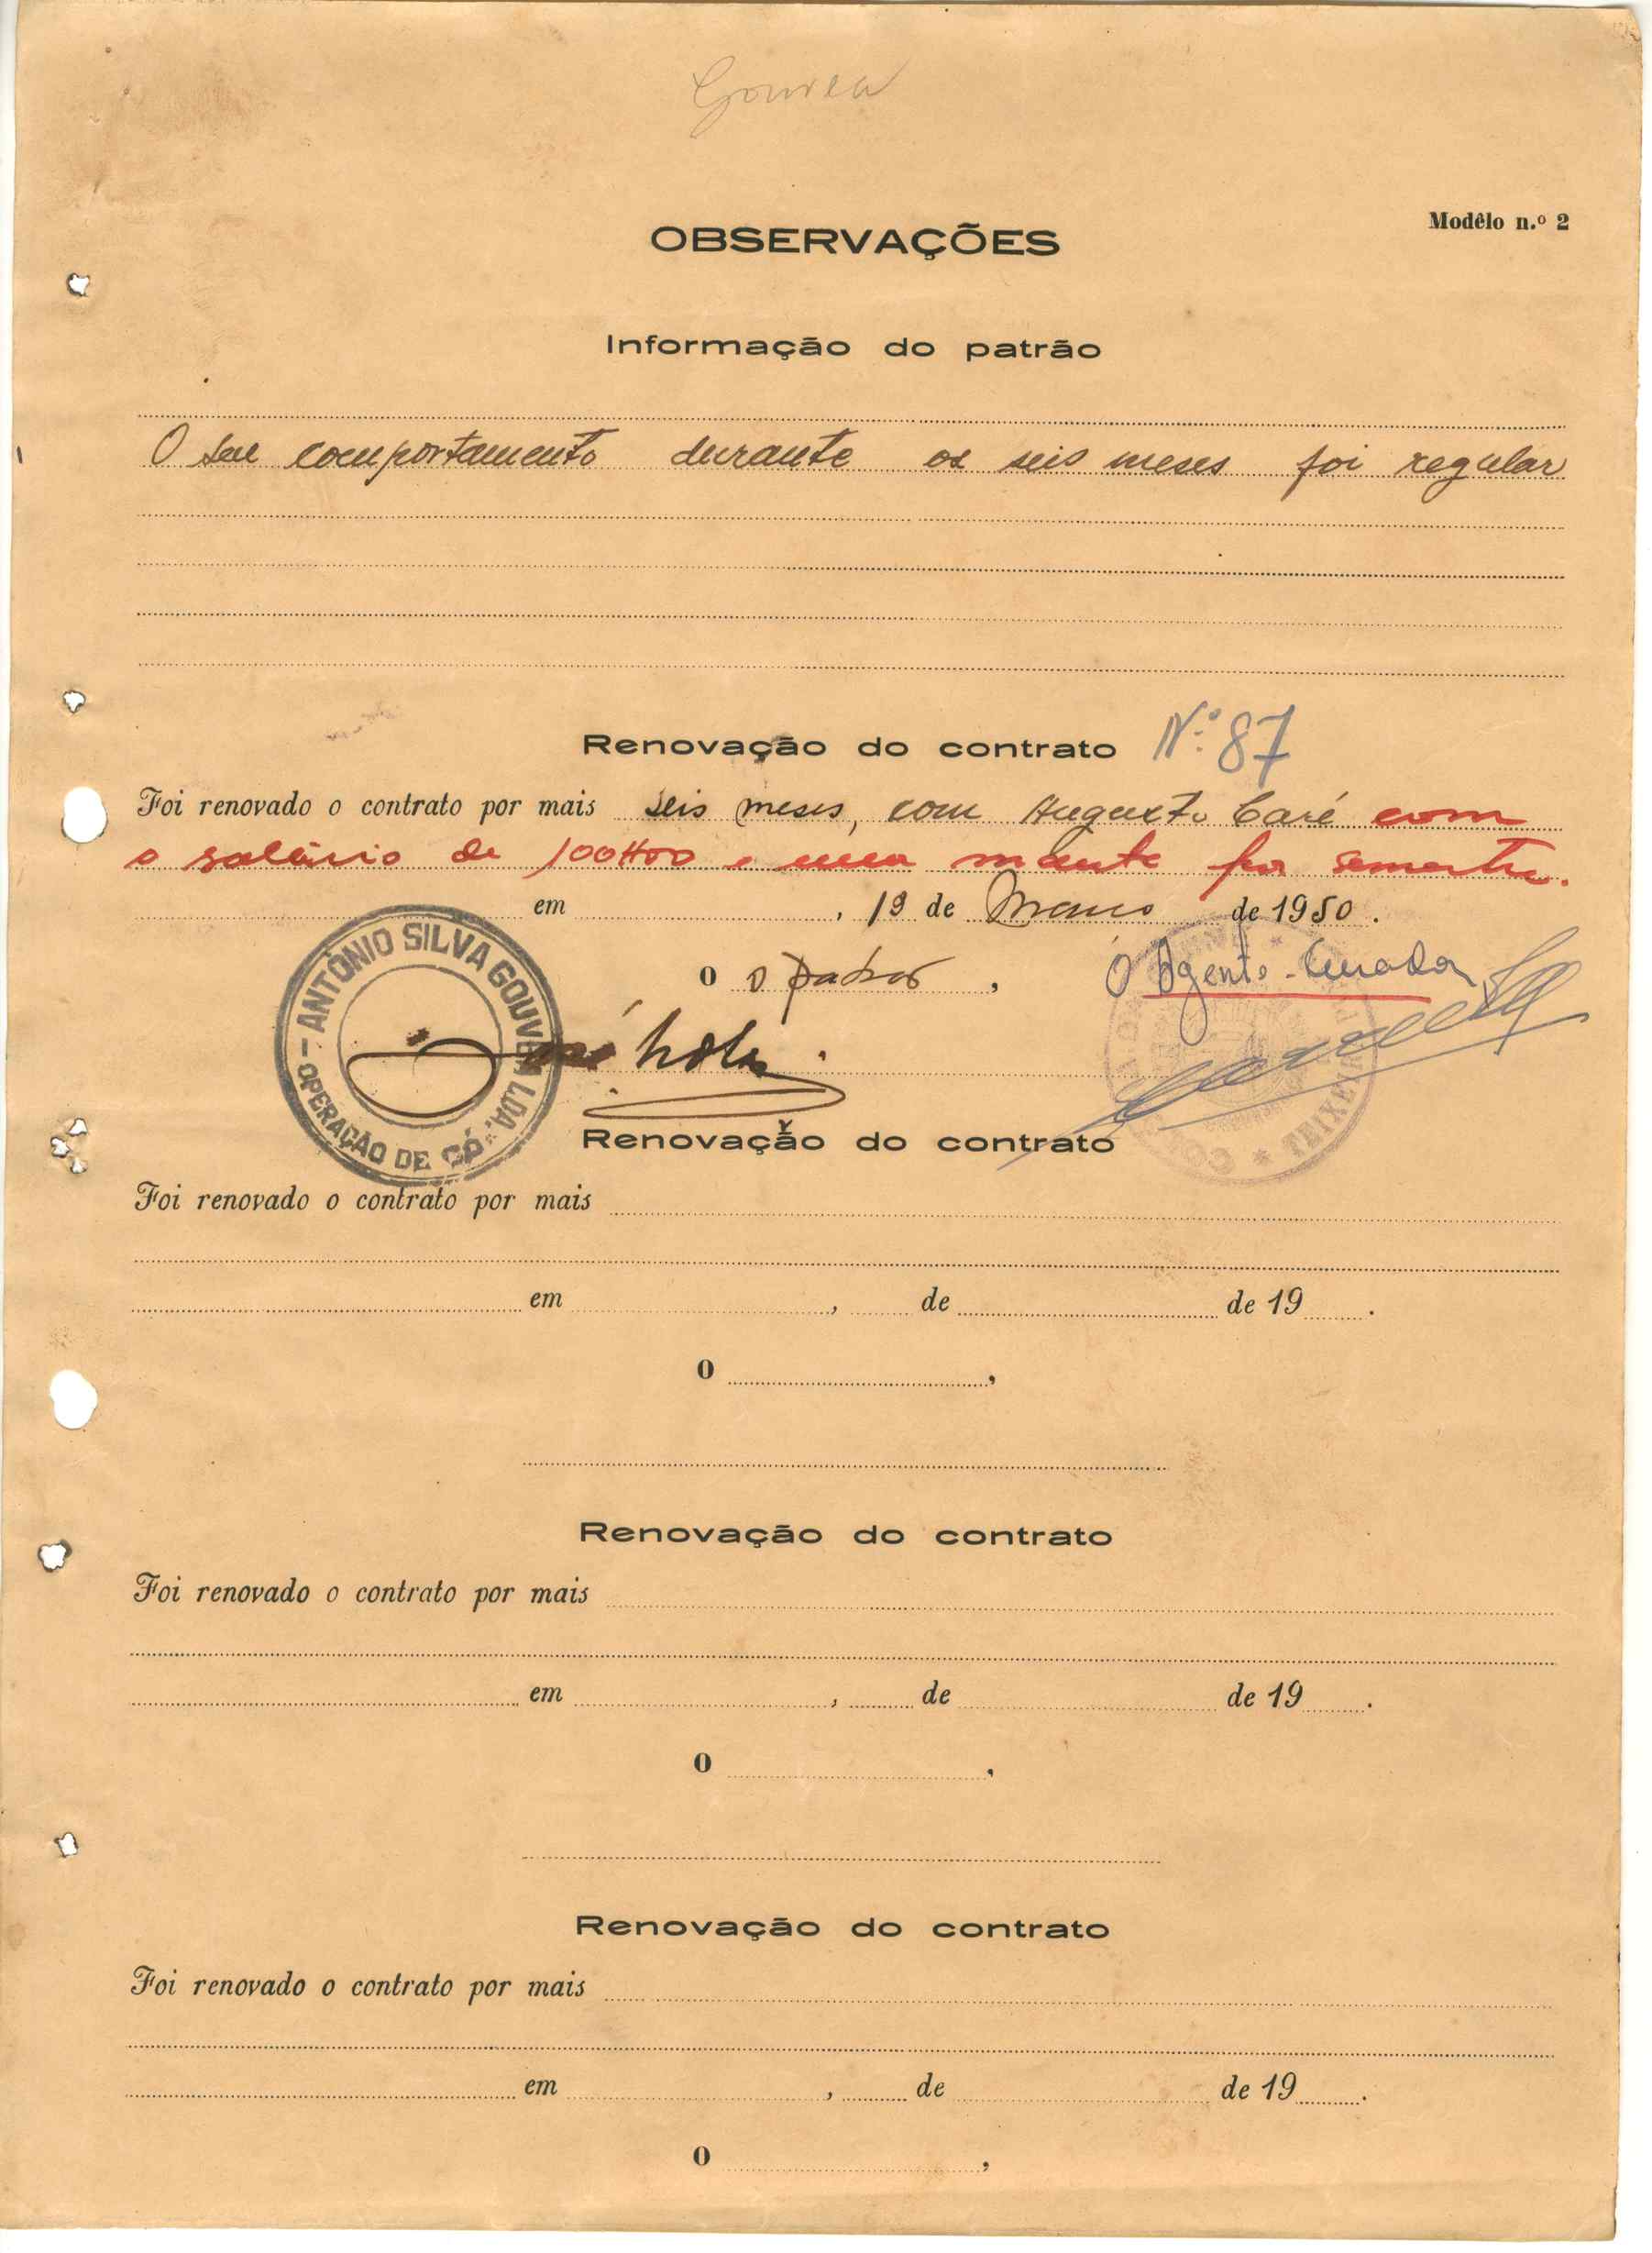 Gouvea
Modêlo n.º 2
OBSERVAÇÕES
Informação do patrão
O seu comportamento durante os seis meses foi regular
Renovação do contrato Nº 87
Foi renovado o contrato por mais seis meses, com Augusto Caré com
o salário de 100$00 e uma manta por semestre.
em , 19 de Março de 1950.
O o patrão, O Agente-Curador
ANTÓNIO SILVA GOUVEA LDA.
OPERAÇÃO DE
TEIXEIRA
Renovação do contrato
Foi renovado o contrato por mais
em , de de 19 .
O ,
Renovação do contrato
Foi renovado o contrato por mais
em , de de 19 .
O ,
Renovação do contrato
Foi renovado o contrato por mais
em , de de 19 .
O ,